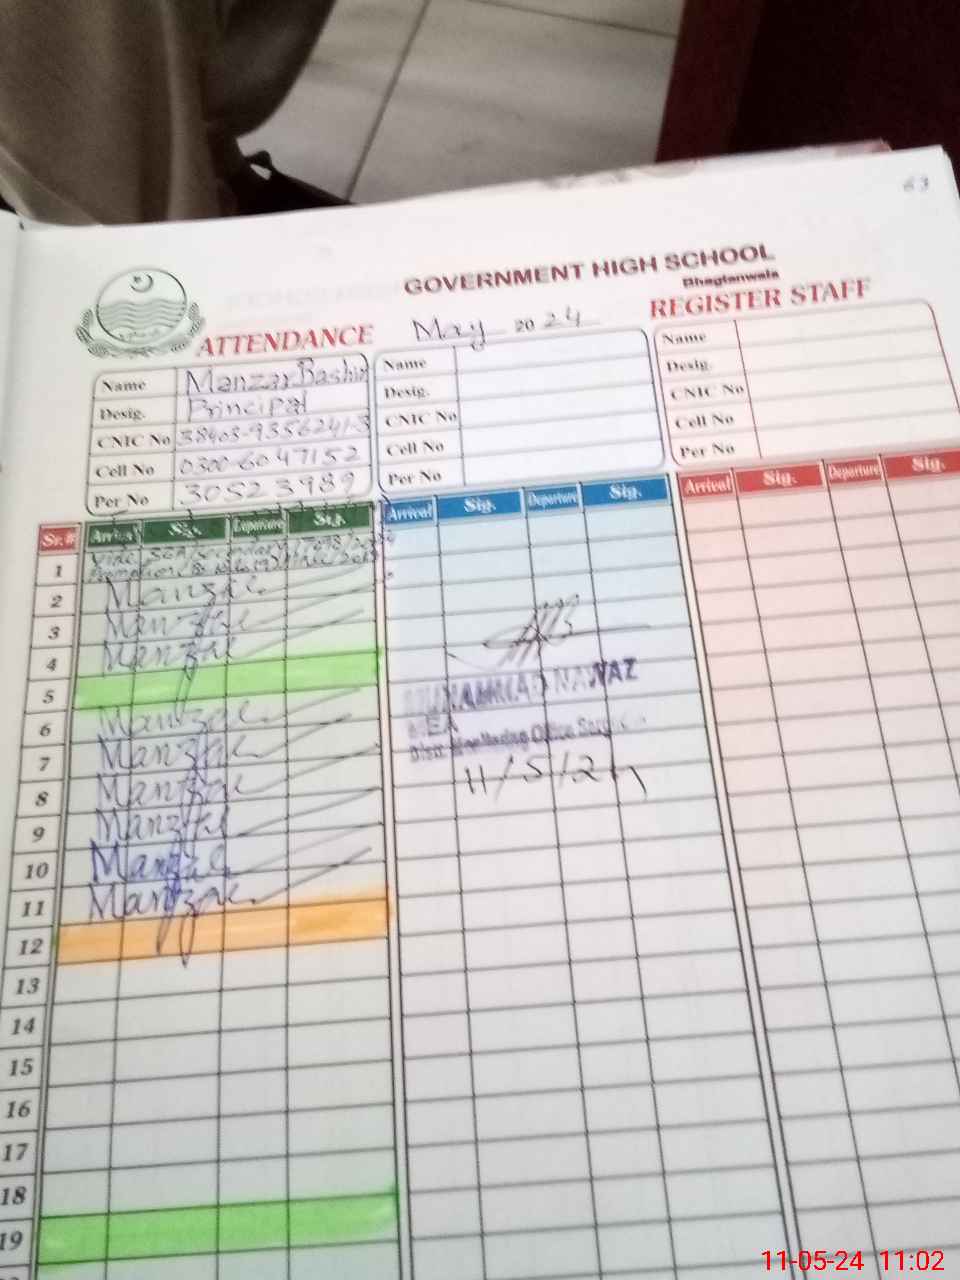 63
GOVERNMENT HIGH SCHOOL
Bhagtanwala
ATTENDANCE May 2024 REGISTER STAFF
Name Manzar Bashir
Desig. Principal
CNIC No 38403-9356241-3
Cell No 0300-6047152
Per No 30523989
Name
Desig.
CNIC No
Cell No
Per No
Name
Desig.
CNIC No
Cell No
Per No
Sr.# Arrival Sig. Departure Sig. Arrival Sig. Departure Sig. Arrival Sig. Departure Sig.
1 Vide
Promotion
2 Manzar
3 Manzar
4 Manzar
5
6 Manzar
7 Manzar
8 Manzar
9 Manzar
10 Manzar
11 Manzar
12
13
14
15
16
17
18
19
MUHAMMAD NAWAZ
MEA
Monitoring Office
11/5/24
11-05-24 11:02